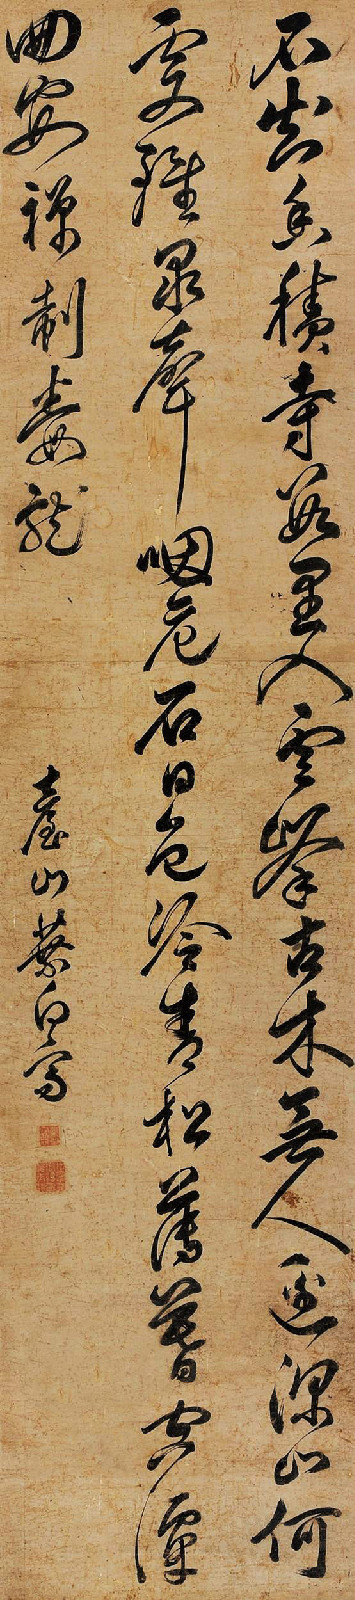 不知香積寺數里入雲峯古木無人逕深山何
處鐘泉聲咽危石日色冷青松薄暮空潭
曲安禪制毒龍
臺山葉向高